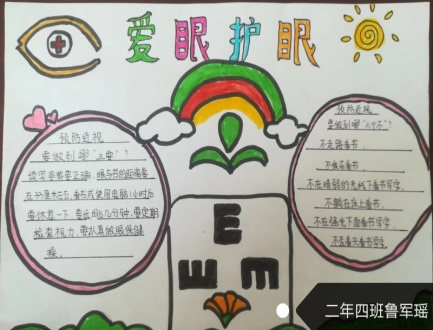 爱眼护眼
预防近视
要做到哪"三要"?
读写姿势要正确,眼与书的距离要
在33厘米左右。看书或使用电脑1小时后
要休息一下,要远眺几分钟。要定期
检查视力,要认真做眼保健
操。
E
预防近视
要做到哪"六个不"?
不走路看书。
不在暗弱的光线下看书写字。
不躺在床上看书。
不在强光下看书写字。
二年四班鲁军瑶